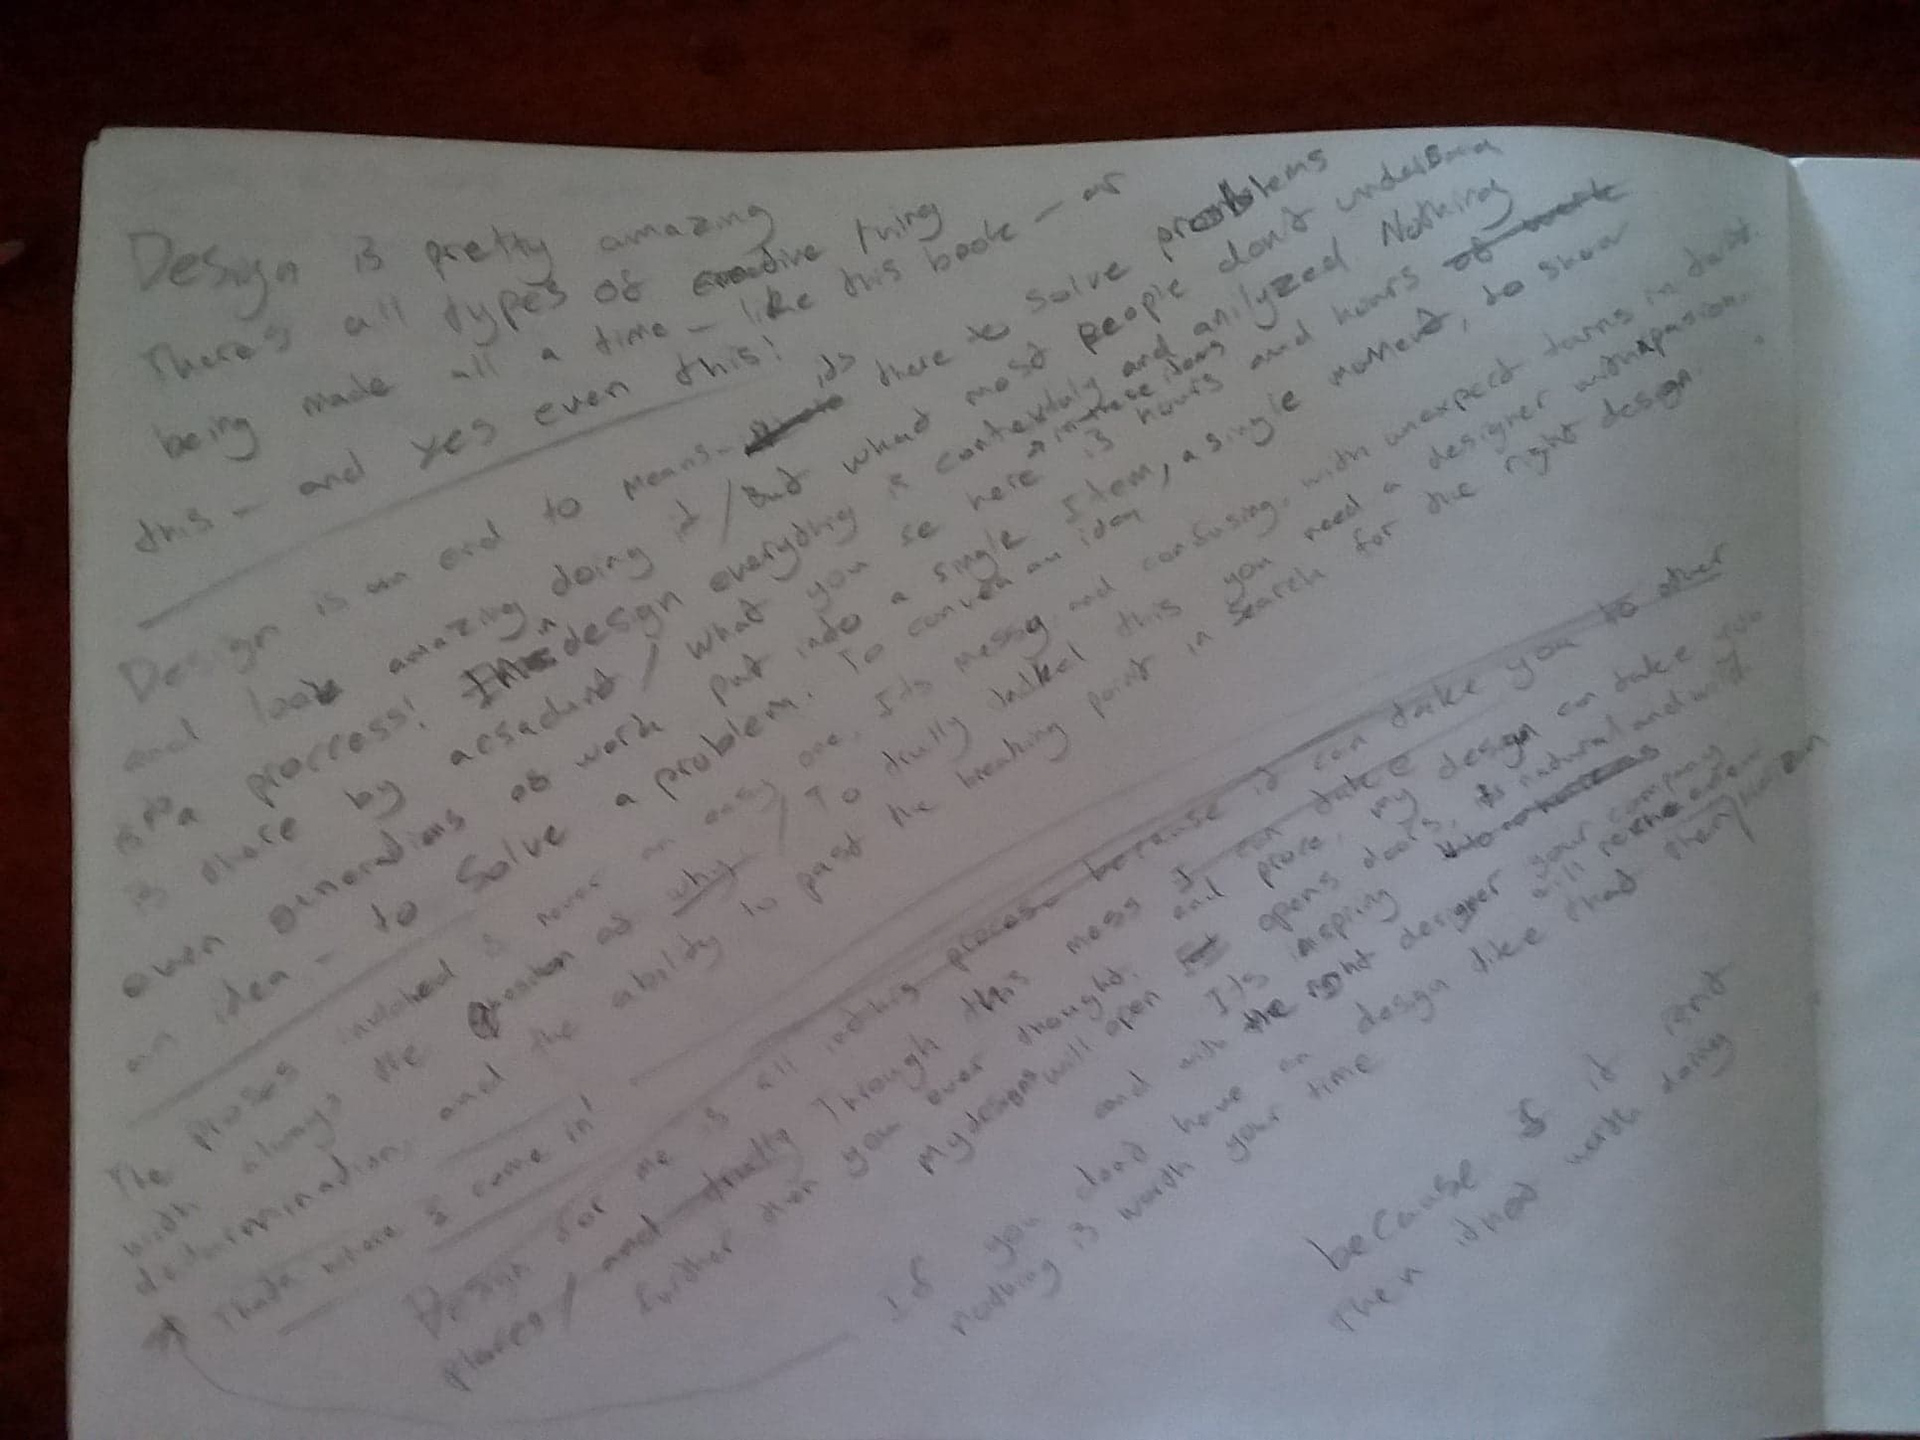 Design is pretty amazing
There's all types of creative thing
being made all a time - like this book - or
this - and yes even this!
Design is an end to means - its there to solve problems
and look amazing doing it / But what most people don't understand
is a proccess! In design everything is contextuly and anilyzed Nothing
is there by acsadent / what you se here is hours and hours of work
even generations of work put into a single Item, a single moment, to show
an idea - to Solve a problem. To convea an idea
The proses involved is never an easy one. Its messy and confusing, with unexpect turns in
with always the question of why / To trully this you need a designer with passion
determination, and the ability to past the breaking point in search for the right design.
Thats where I come in!
Design for me is all proces because it can take you to other
places / and Through this mess I can take
further than you ever thought. and my design can take you
My designs will open opens doors, its natural and
Its inspiring
and with the right designer your company will
If you dont have an design like that then
nothing is worth your time
because if it isnt
Then its not worth doing